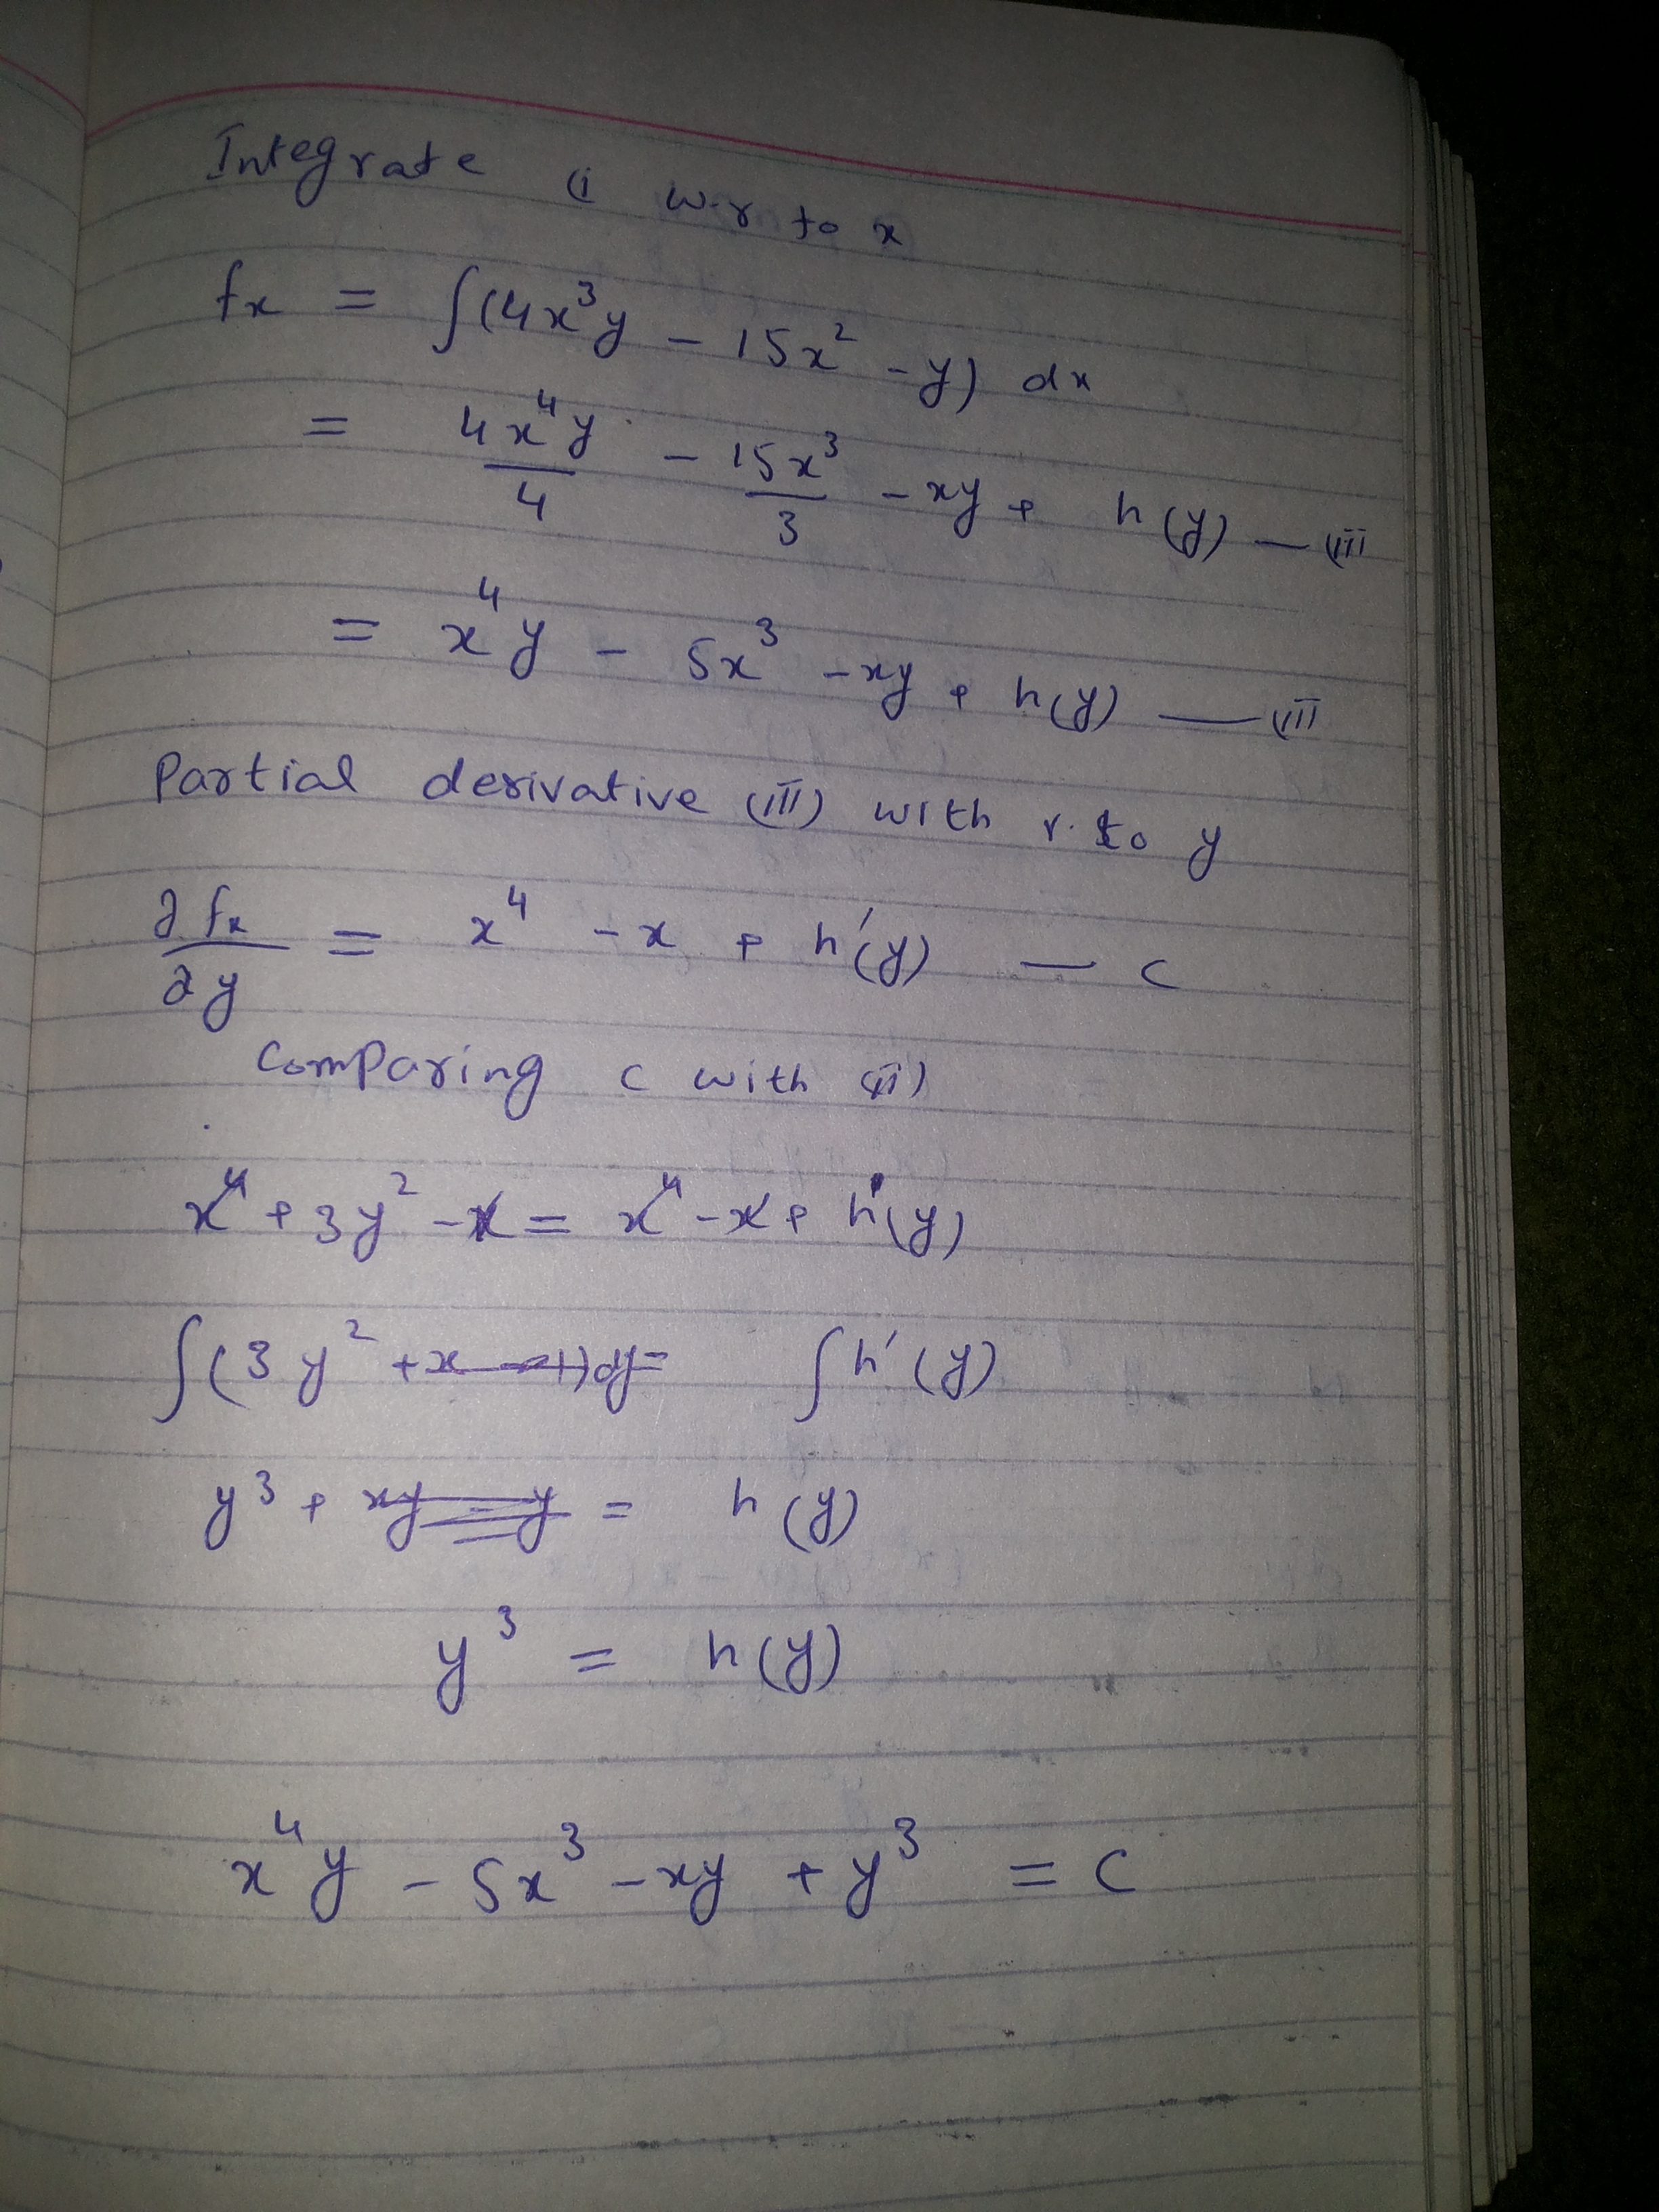 Integrate (i w.r to x
fx = ∫(4x³y - 15x² - y) dx
= 4x⁴y/4 - 15x³/3 - xy + h(y) — (iii
= x⁴y - 5x³ - xy + h(y) — (iii
Partial derivative (iii) with r. to y
∂fx/∂y = x⁴ - x + h'(y) — c
Comparing c with (ii)
x⁴ + 3y² - x = x⁴ - x + h'(y)
∫(3y² + x - 1)dy = ∫h'(y)
y³ + xy - y = h(y)
y³ = h(y)
x⁴y - 5x³ - xy + y³ = c